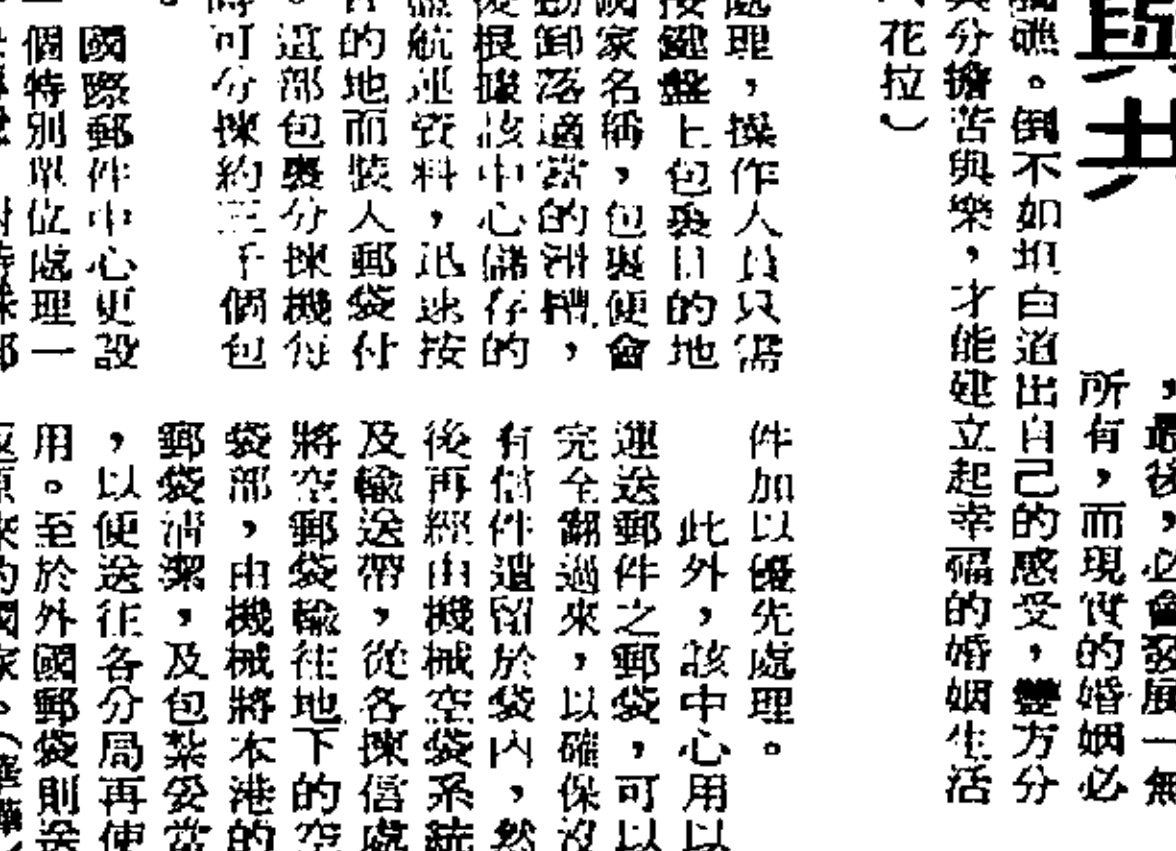 與共
，最後，必會發展一無
所有，而現世的婚姻必
觸礁。倒不如坦白道出自己的感受，雙方分
分擔苦與樂，才能建立起幸福的婚姻生活
花拉）
處理，操作人員只需
按鍵盤上包裹目的地
國家名稱，包裹便會
動卸落適當的滑槽，
後根據該中心儲存的
航運資料，迅速按
的地而裝入郵袋付
。這部包裹分揀機每
可分揀約三千個包
。
國際郵件中心更設
個特別單位處理一
件加以優先處理。
此外，該中心用以
運送郵件之郵袋，可以
完全翻過來，以確保沒
有信件遺留於袋內，然
後再經由機械空袋系統
及輸送帶，從各揀信處
將空郵袋輸往地下的空
袋部，由機械將本港的
郵袋清潔，及包紮妥當
，以便送往各分局再使
用。至於外國郵袋則送
返原來的國家。